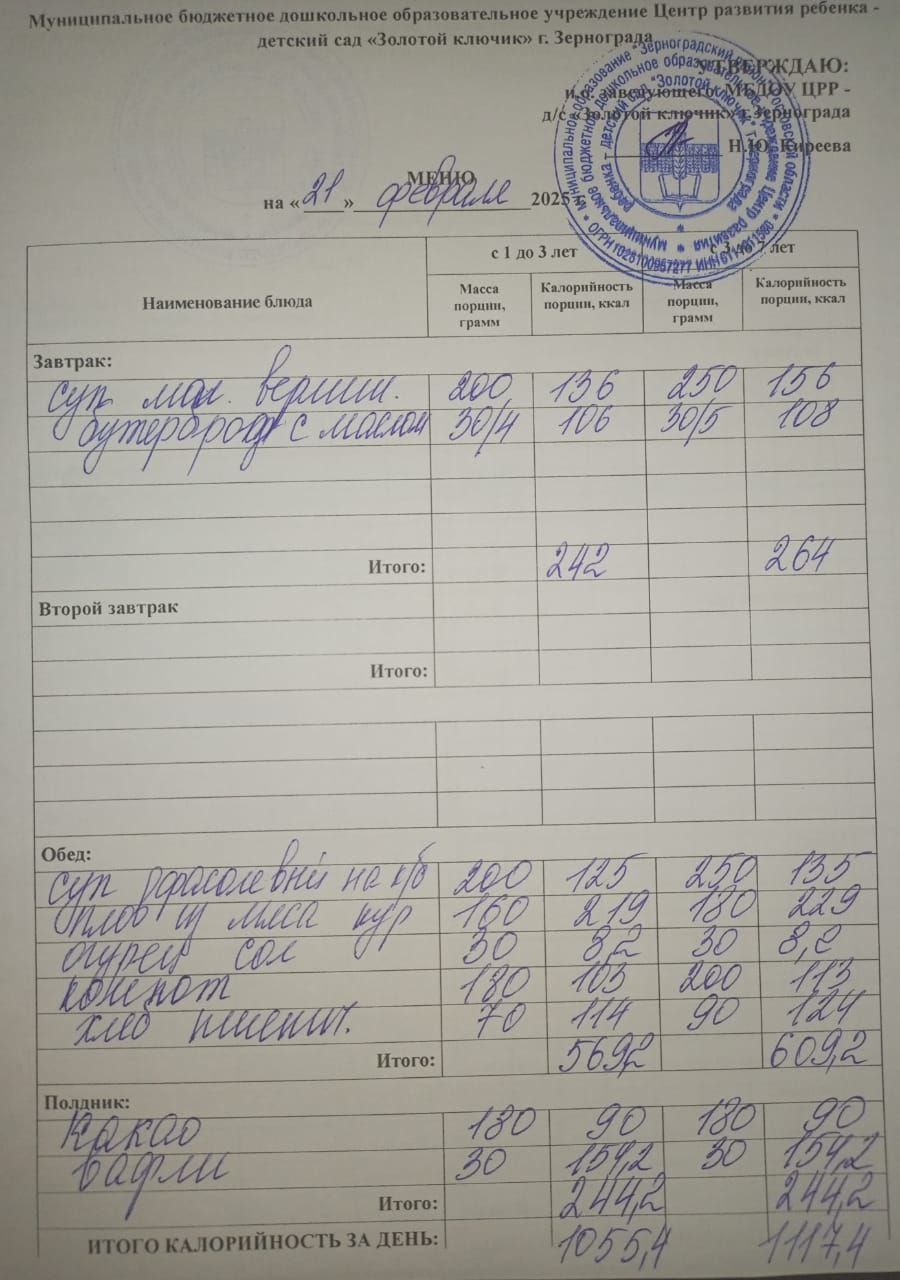 Муниципальное бюджетное дошкольное образовательное учреждение Центр развития ребенка -
детский сад «Золотой ключик» г. Зернограда
УТВЕРЖДАЮ:
и.о. заведующего МБДОУ ЦРР -
д/с «Золотой ключик» г. Зернограда
Н.Ю. Киреева
МЕНЮ
на «21» февраля 2025 г.
Наименование блюда с 1 до 3 лет с 3 до 7 лет
Масса порции, грамм Калорийность порции, ккал Масса порции, грамм Калорийность порции, ккал
Завтрак:
суп мол. вермиш. 200 136 250 156
бутерброд с маслом 30/4 106 30/5 108
Итого: 242 264
Второй завтрак
Итого:
Обед:
суп фасолевый на к/б 200 125 250 135
плов из мяса кур 160 219 180 229
огурец сол 30 8,2 30 8,2
компот 180 103 200 113
хлеб пшенич. 70 114 90 124
Итого: 569,2 609,2
Полдник:
Какао 180 90 180 90
вафли 30 154,2 30 154,2
Итого: 244,2 244,2
ИТОГО КАЛОРИЙНОСТЬ ЗА ДЕНЬ: 1055,4 1117,4